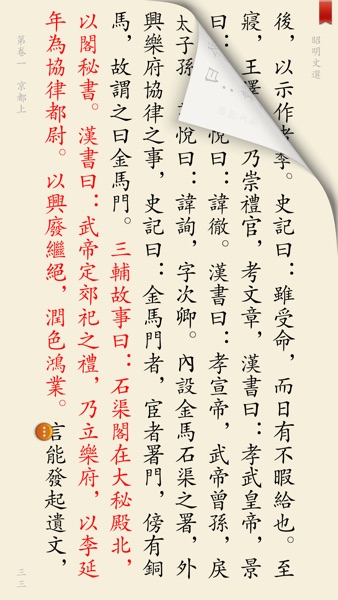 昭明文選
後，以示作李。史記曰：雖受命，而日有不暇給也。至
寢，王澤乃崇禮官，考文章，漢書曰：孝武皇帝，景
曰：悅曰：諱徹。漢書曰：孝宣帝，武帝曾孫，戾
太子孫悅曰：諱詢，字次卿。內設金馬石渠之署，外
興樂府協律之事，史記曰：金馬門者，宦者署門，傍有銅
馬，故謂之曰金馬門。三輔故事曰：石渠閣在大秘殿北，
以閣秘書。漢書曰：武帝定郊祀之禮，乃立樂府，以李延
年為協律都尉。以興廢繼絕，潤色鴻業。言能發起遺文，
第卷一 京都上
三三